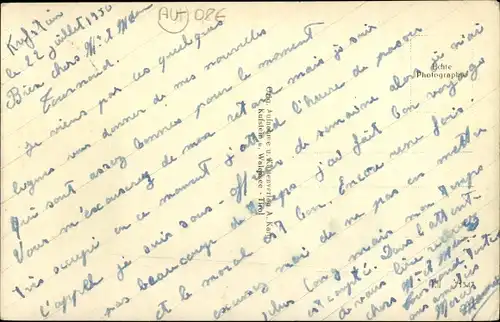 AUT 02E
Kufstein
le 22 juillet 1950
Bien chers Mr et Mdme
Tournoud.
Je viens par ces quelques
lignes vous donner de mes nouvelles
qui sont assez bonnes pour le moment
Vous m'excuserez de mon retard mais je suis
très occupé en ce moment j'attend l'heure de passer
l'appel je suis sous-officier de semaine alors je n'ai
pas beaucoup de temps j'ai fait bon voyage
et le moral est bon. Encore une fois
excusez moi de ne pas en mettre
plus long mais mon temps
est compté. Dans l'attente
de vous lire recevez
chers Mr et Mdme
Tournoud
mes amitiés
Echte
Photographie
Orig. Aufnahme u. Eigenverlag A. Karg
Kufstein u. Walchsee - Tirol